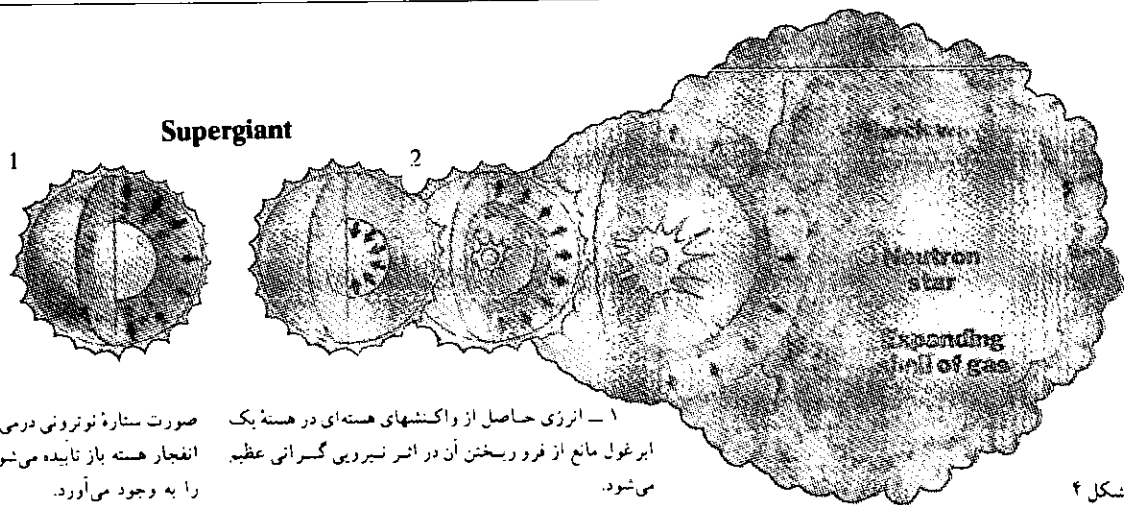 Supergiant
1
2
Neutron
star
Expanding
shell of gas
۱ ــ انرژی حاصل از واکنشهای هسته‌ای در هستهٔ یک
ابر غول مانع از فرو ریختن آن در اثر نیرویی گرانی عظیم
می‌شود.
صورت ستارهٔ نوترونی درمی
انفجار هسته باز تابیده می‌شو
را به وجود می‌آورد.
شکل ۴